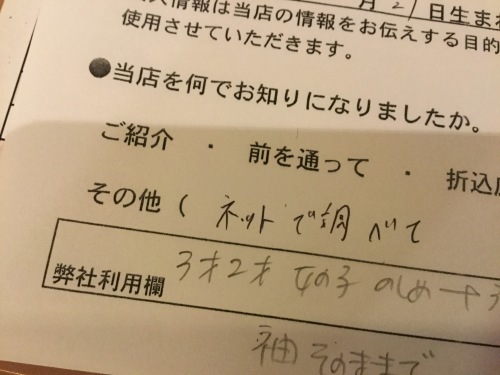 人情報は当店の情報をお伝えする目的
月 2 日生まれ
使用させていただきます。
●当店を何でお知りになりましたか。
ご紹介 ・ 前を通って ・ 折込
その他 ( ネットで調べて
弊社利用欄
3才2才 女の子 のしめ→
袖 そのままで